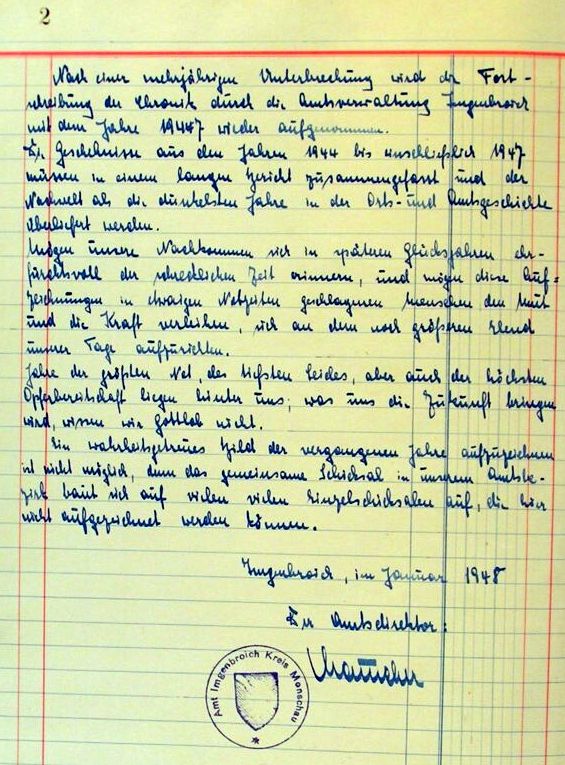 2
Nach einer mehrjährigen Unterbrechung wird die Fort-
schreibung der Chronik durch die Amtsverwaltung Imgenbroich
mit dem Jahre 19447 wieder aufgenommen.
Die Geschehnisse aus den Jahren 1944 bis einschließlich 1947
müssen in einem langen Bericht zusammengefasst und der
Nachwelt als die dunkelsten Jahre in der Orts- und Amtsgeschichte
überliefert werden.
Mögen unsere Nachkommen sich in späteren Glücksjahren ehr-
furchtsvoll der schrecklichen Zeit erinnern, und mögen diese Auf-
zeichnungen in etwaigen Notzeiten geschlagenen Menschen den Mut
und die Kraft verleihen, sich an dem noch größeren Elend
unserer Tage aufzurichten.
Jahre der größten Not, des tiefsten Leides, aber auch der höchsten
Opferbereitschaft liegen hinter uns, was uns die Zukunft bringen
wird, wissen wir gottlob nicht.
Ein wahrheitsgetreues Bild der vergangenen Jahre aufzuzeichnen
ist nicht möglich, denn das gemeinsame Schicksal in unserem Amtsbe-
zirk baut sich auf vielen vielen Einzelschicksalen auf, die hier
nicht aufgezeichnet werden können.
Imgenbroich, im Januar 1948
Der Amtsdirektor:
Amt Imgenbroich Kreis Monschau